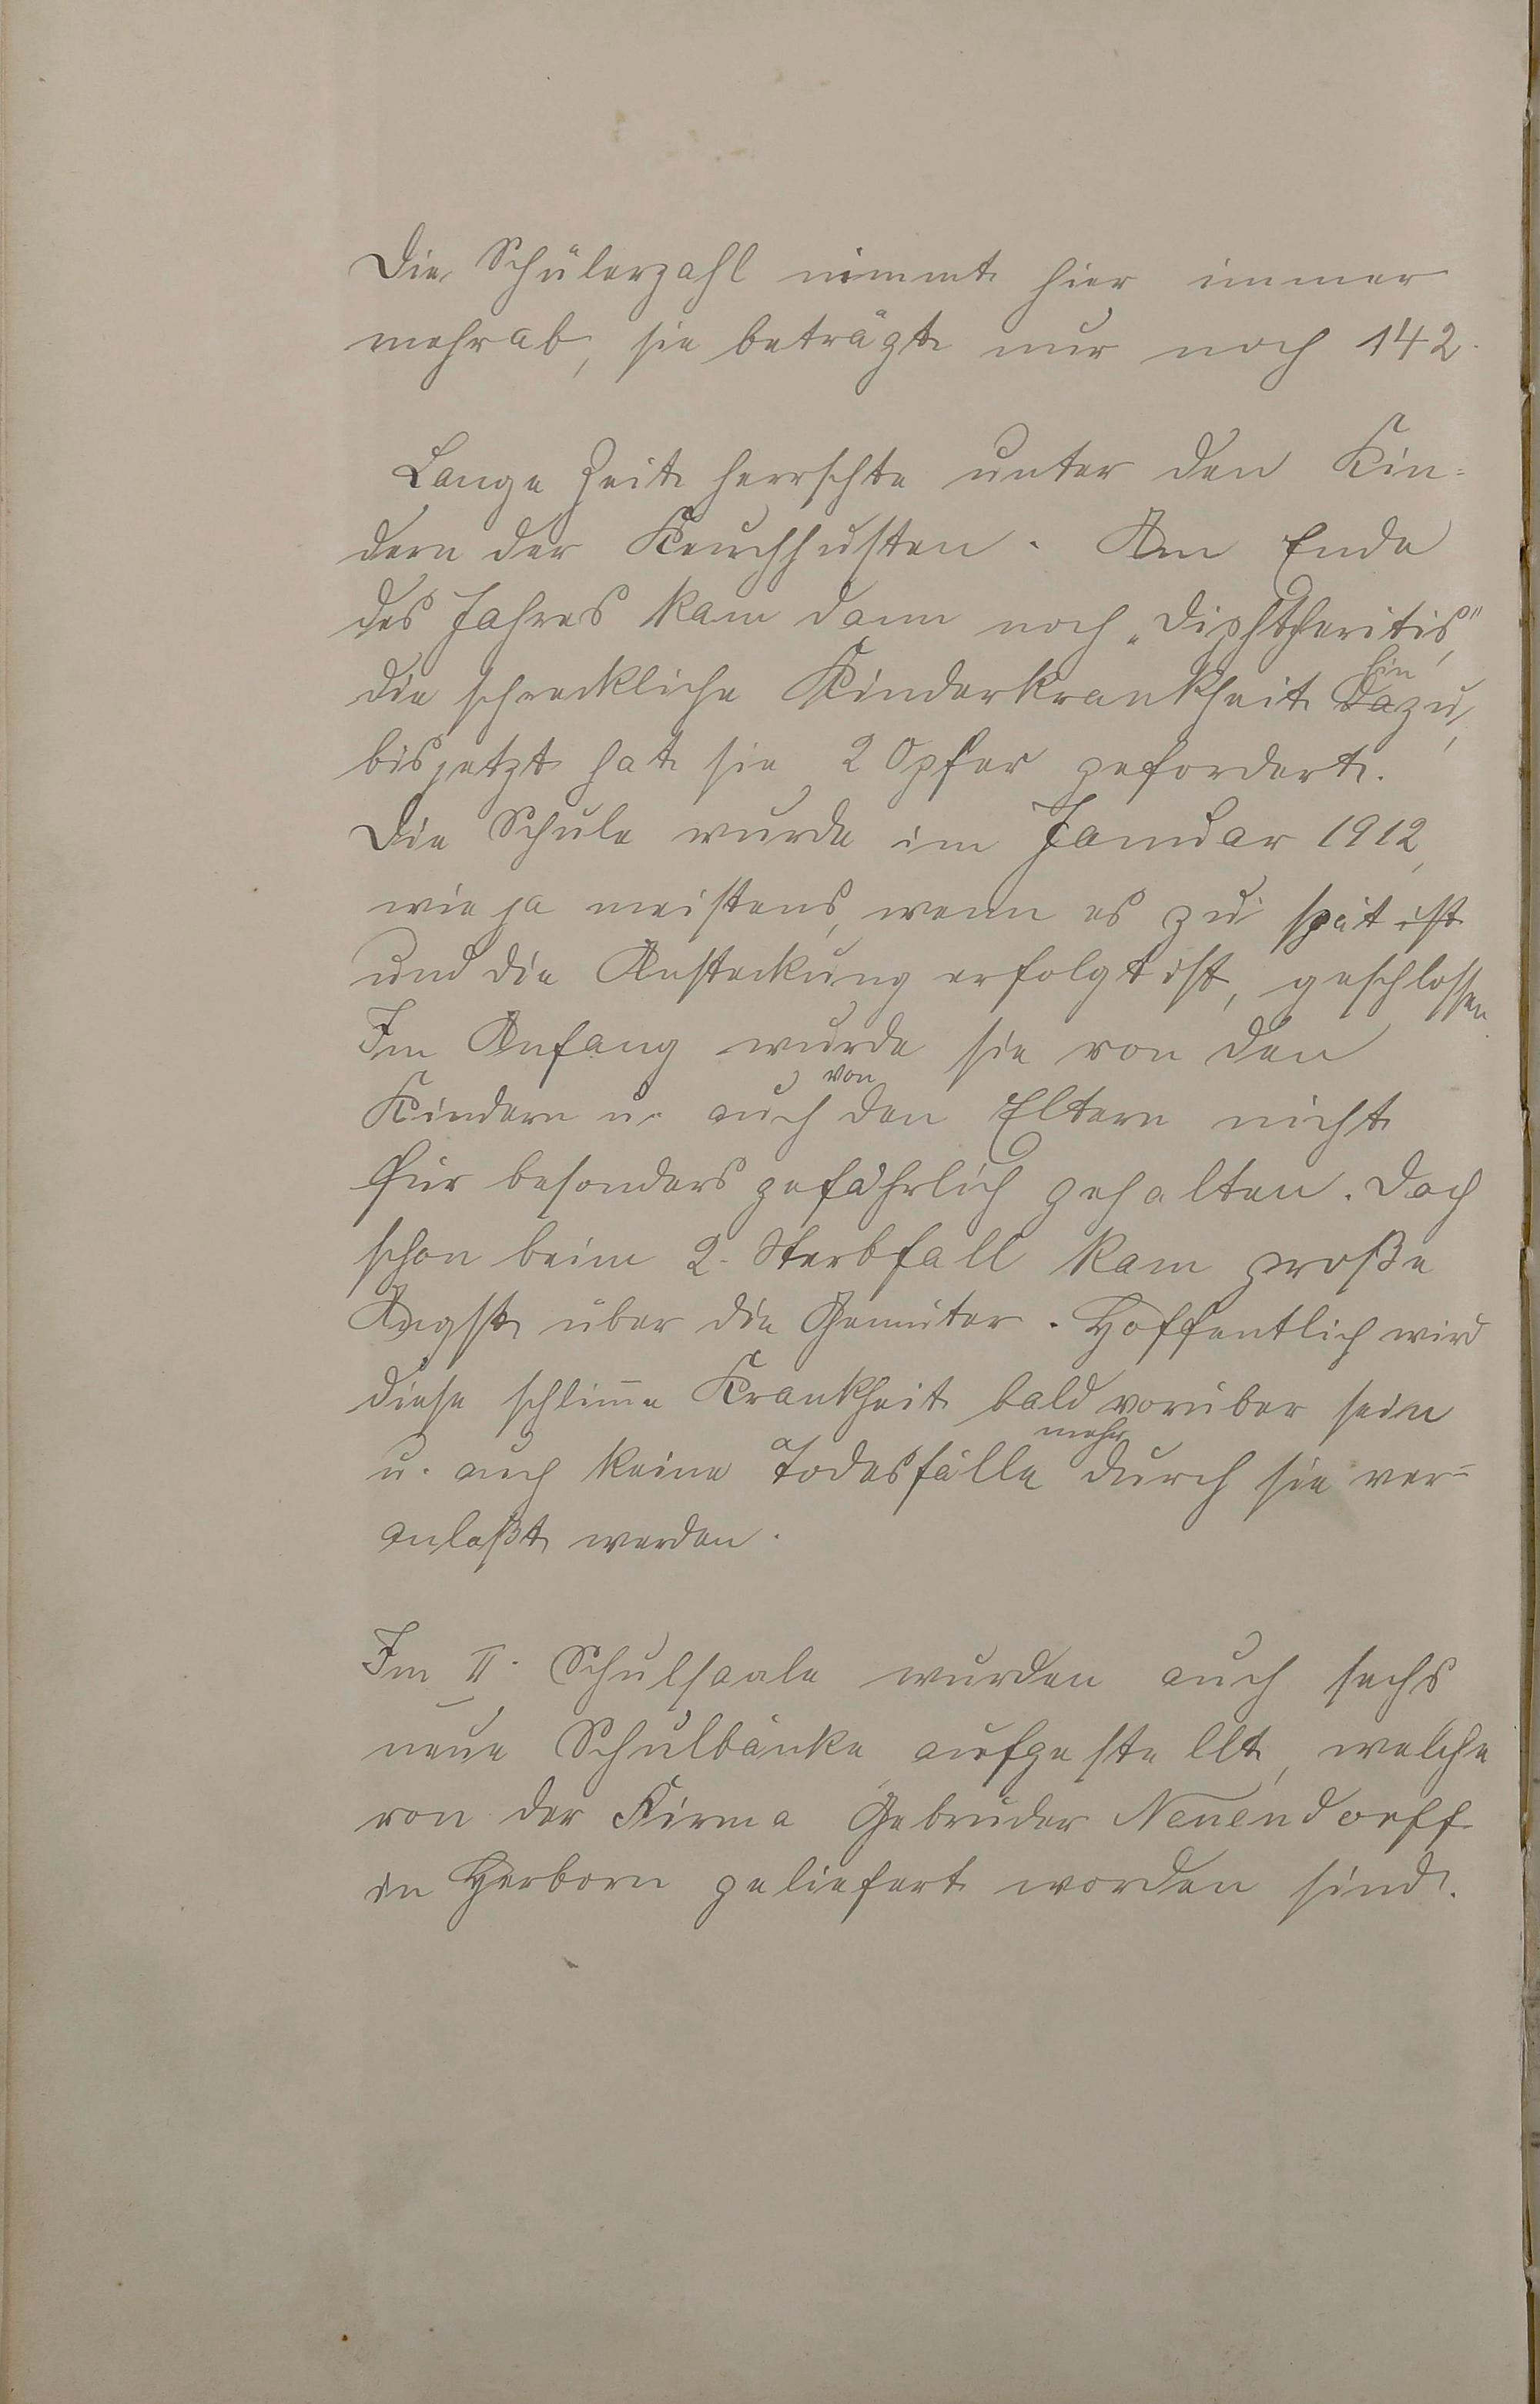 Die Schülerzahl nimmt hier immer
mehr ab, sie beträgt nur noch 142.
Lange Zeit herrschte unter den Kin-
dern der Keuchhusten. Am Ende
des Jahres kam dann noch „Diphtheritis“,
die schreckliche Kinderkrankheit hinzu,
bis jetzt hat sie 2 Opfer gefordert.
Die Schule wurde im Januar 1912,
wie ja meistens, wenn es zu spät ist
und die Ansteckung erfolgt ist, geschlossen.
Im Anfang wurde sie von den
Kindern u. auch von den Eltern nicht
für besonders gefährlich gehalten. Doch
schon beim 2. Sterbfall kam große
Angst über die Gemüter. Hoffentlich wird
diese schlim̅e Krankheit bald vorüber sein
u. auch keine Todesfälle mehr durch sie ver-
anlaßt werden.
Im II. Schulsaale wurden auch sechs
neue Schulbänke aufgestellt, welche
von der Firma Gebrüder Neuendorff
in Herborn geliefert worden sind.